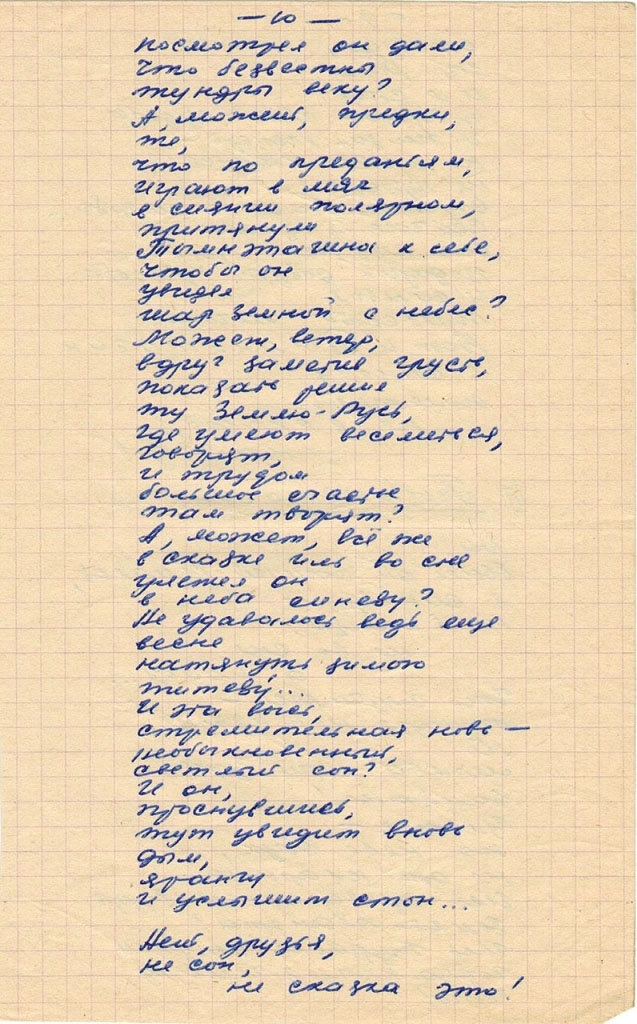 — 10 —
посмотрел он дали,
что безвестны
тундры веку?
А, может, предки,
те,
что по преданьям,
играют в мяч
в сиянии полярном,
притянули
Тымнэтагина к себе,
чтобы он
увидел
шар земной с небес?
Может, ветер,
вдруг заметив грусть,
показать решил
ту Землю-Русь,
где умеют веселиться,
говорят,
и трудом
большое счастье
там творят?
А, может, всё же
в сказке иль во сне
улетел он
в неба синеву?
Не удавалось ведь еще
весне
натянуть зимою
тетеву...
И эта высь,
стремительная новь —
необыкновенный,
светлый сон?
И он,
проснувшись,
тут увидит вновь
дым,
ярангу
и услышит стон...
Нет, друзья,
не сон,
не сказка это!